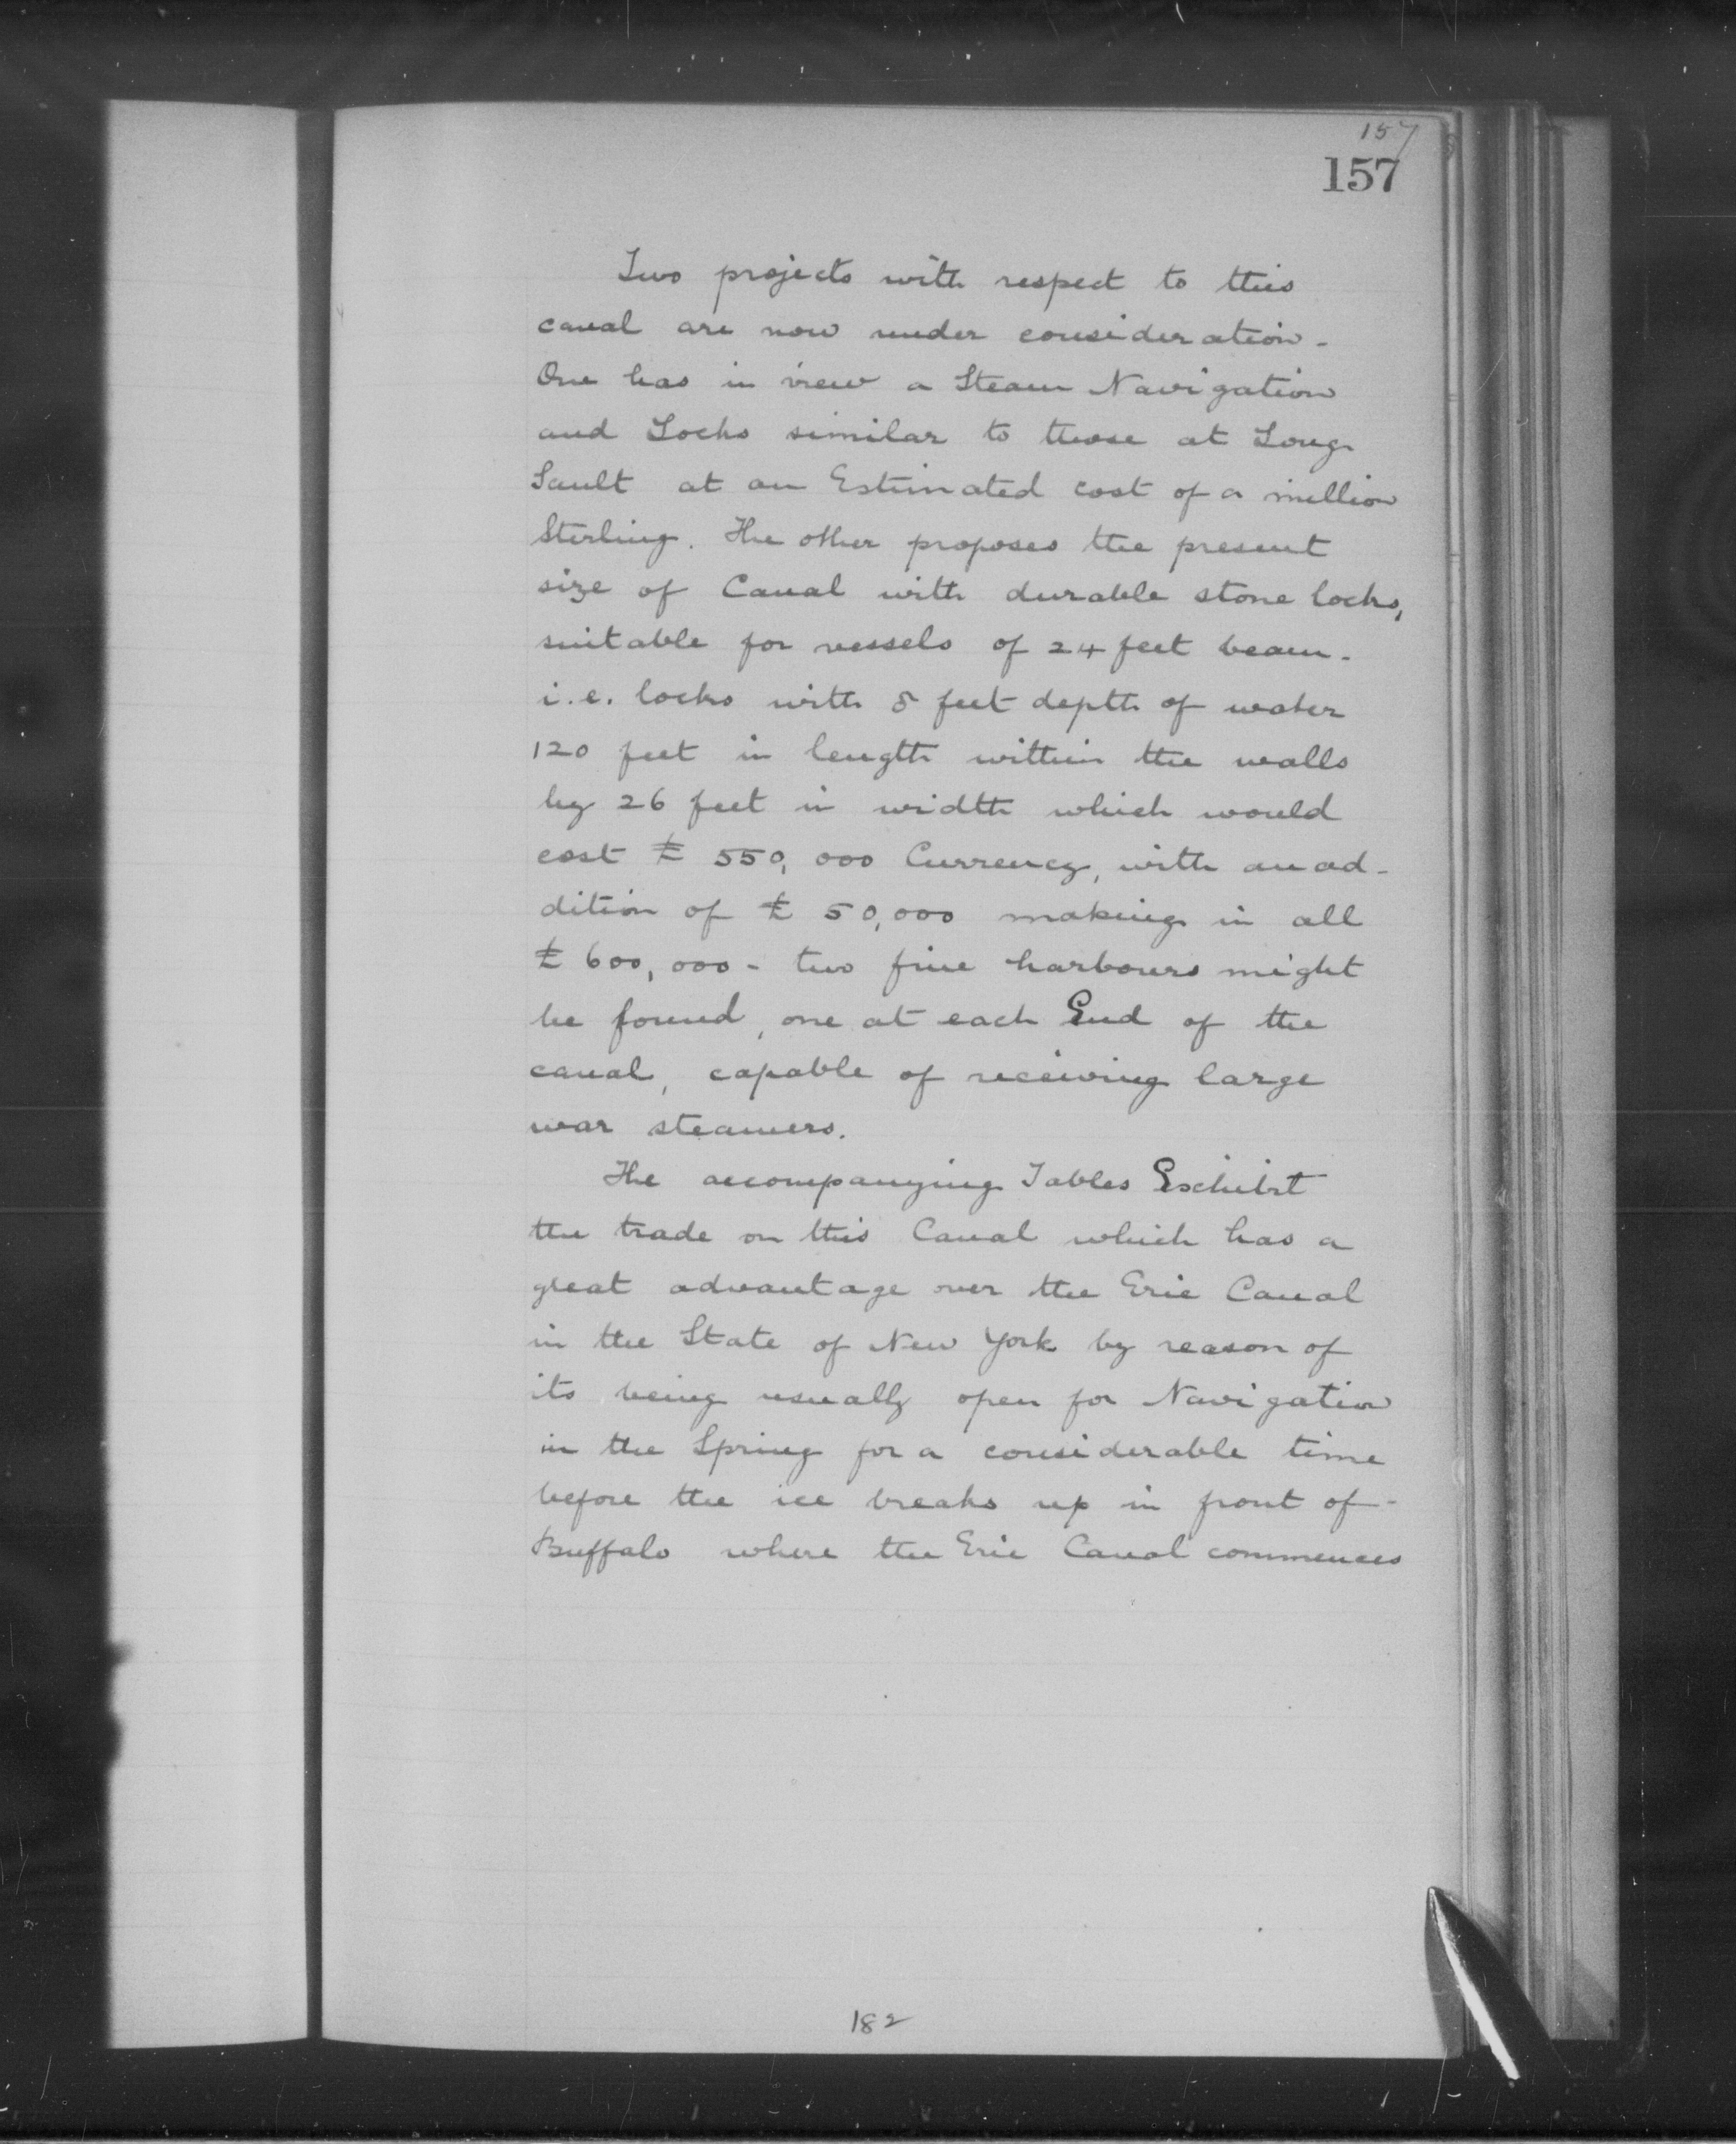 157
157
Two projects with respect to this
canal are now under consideration -
One has in view a Steam Navigation
and Locks similar to those at Long
Sault at an Estimated cost of a million
Sterling. The other proposes the present
size of Canal with durable stone locks,
suitable for vessels of 24 feet beam -
i.e. locks with 8 feet depth of water
120 feet in length within the walls
by 26 feet in width which would
cost £ 550,000 Currency, with an ad-
dition of £ 50,000 making in all
£ 600,000 - two fine harbours might
be found, one at each End of the
canal, capable of receiving large
war steamers.
The accompanying Tables Exhibit
the trade on this Canal which has a
great advantage over the Erie Canal
in the State of New York by reason of
its being usually open for Navigation
in the Spring for a considerable time
before the ice breaks up in front of -
Buffalo where the Erie Canal commences
182